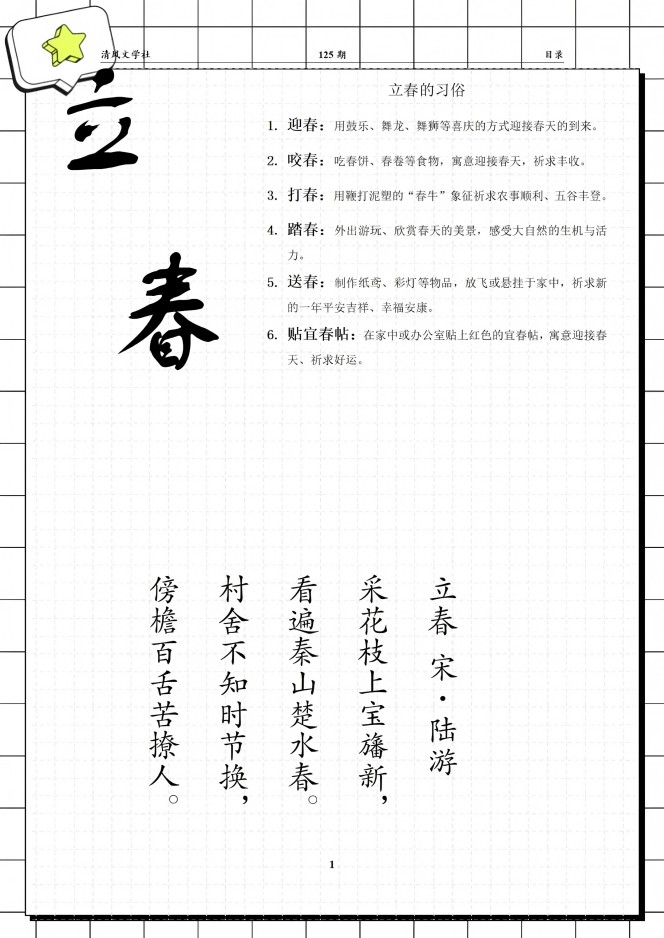 清风文学社 125 期 目录
立
春
立春的习俗
1. 迎春：用鼓乐、舞龙、舞狮等喜庆的方式迎接春天的到来。
2. 咬春：吃春饼、春卷等食物，寓意迎接春天，祈求丰收。
3. 打春：用鞭打泥塑的“春牛”象征祈求农事顺利、五谷丰登。
4. 踏春：外出游玩、欣赏春天的美景，感受大自然的生机与活
力。
5. 送春：制作纸鸢、彩灯等物品，放飞或悬挂于家中，祈求新
的一年平安吉祥、幸福安康。
6. 贴宜春帖：在家中或办公室贴上红色的宜春帖，寓意迎接春
天、祈求好运。
立春 宋·陆游
采花枝上宝旛新，
看遍秦山楚水春。
村舍不知时节换，
傍檐百舌苦撩人。
1